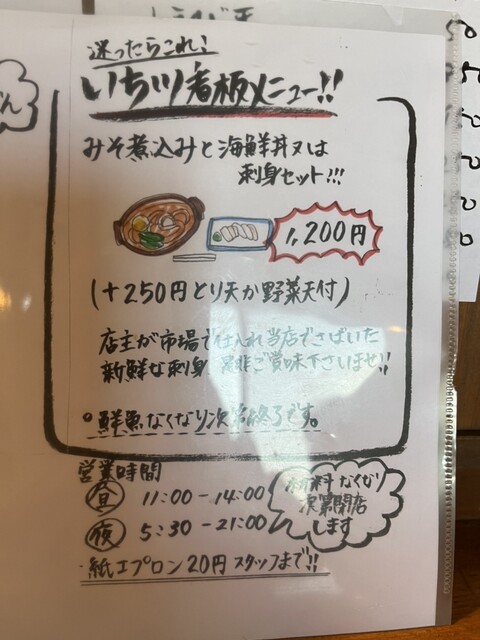 迷ったらこれ!
いち川看板メニュー!!
みそ煮込みと海鮮丼又は
刺身セット!!!
1,200円
(+250円とり天か野菜天付)
店主が市場で仕入れ当店でさばいた
新鮮な刺身 是非ご賞味下さいませ!!
○鮮魚なくなり次第終了です。
営業時間
昼 11:00-14:00
夜 5:30-21:00
材料なくなり
次第閉店
します
・紙エプロン20円スタッフまで!!